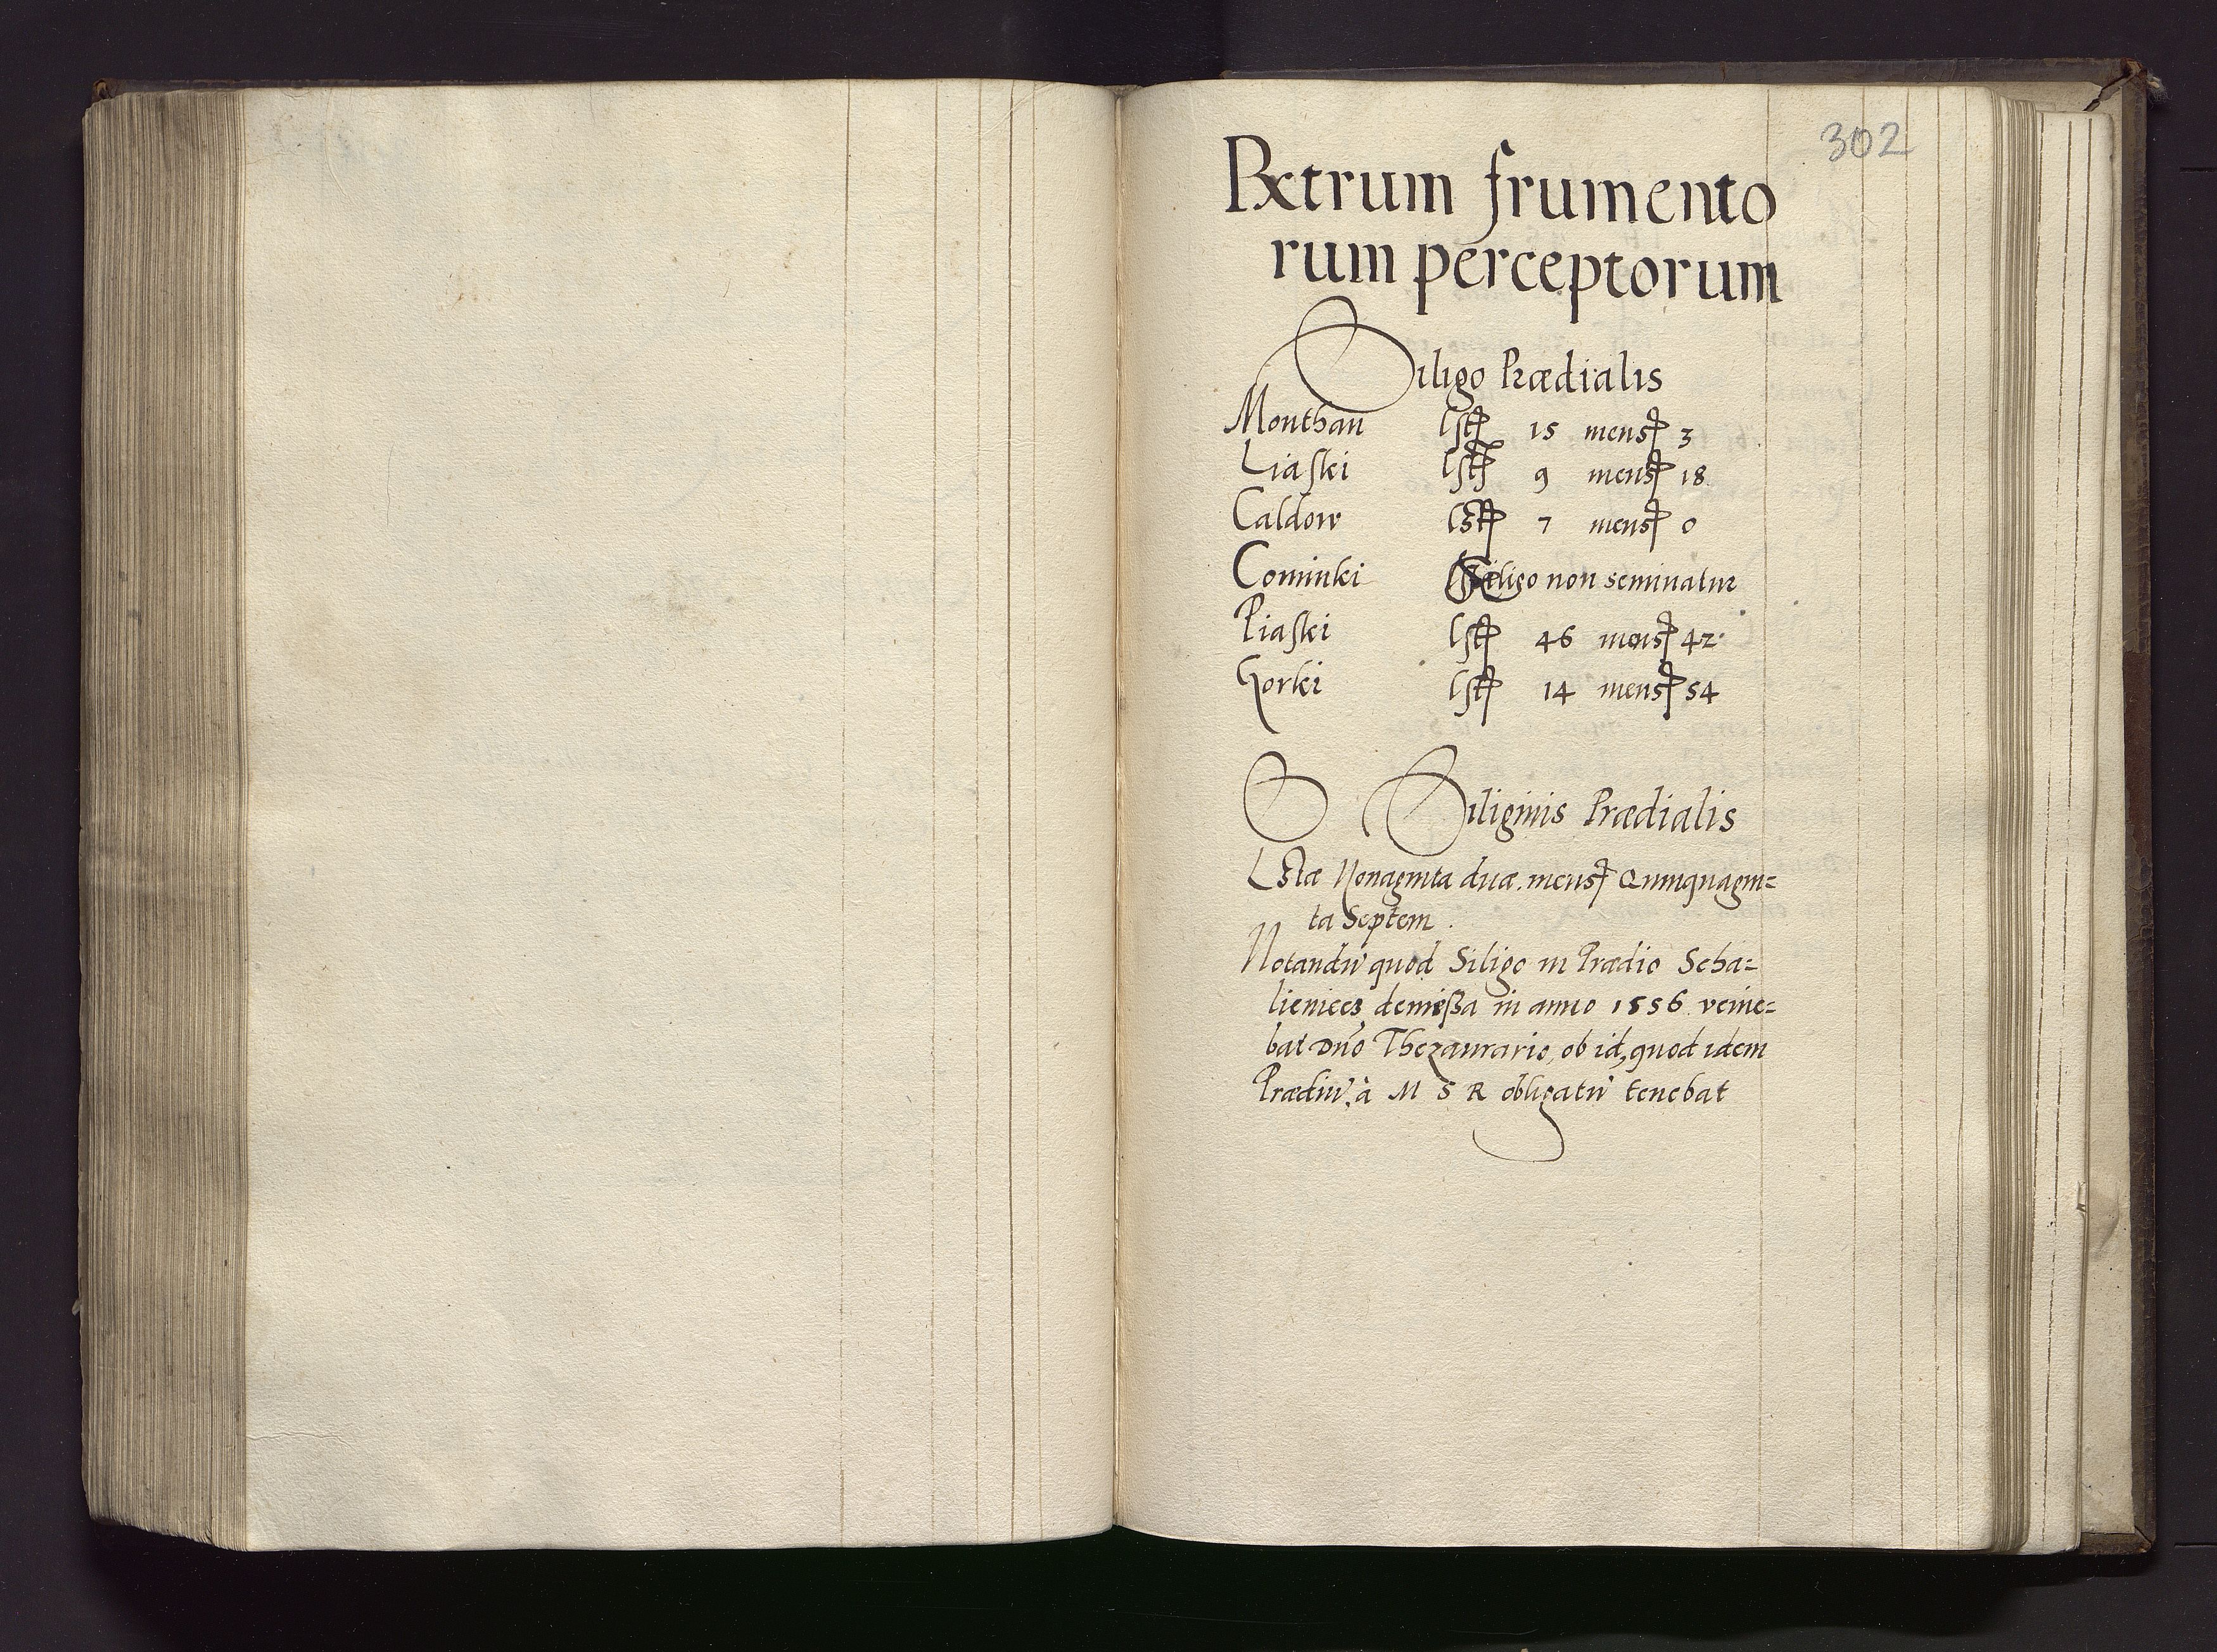 302
Rxtrum frumento
rum perceptorum
Siligo Prædialis
Monthau lstꝭ 15 mensꝭ 3
Liaski lstꝭ 9 mensꝭ 18
Caldow lstꝭ 7 mensꝭ 0
Cominki Siligo non seminatur
Piaski lstꝭ 46 mensꝭ 42
Gorki lstꝭ 14 mensꝭ 54
S Siliginis Prædialis
Lstæ Nonaginta duæ. mensꝭ Quinquagin=
ta Septem.
Notandū quod Siligo in Prædio Scha=
liениces demißa in anno 1556 venie=
bat Dno Thezaurario, ob id, quod idem
Prædiū, à M S R obligatū tenebat